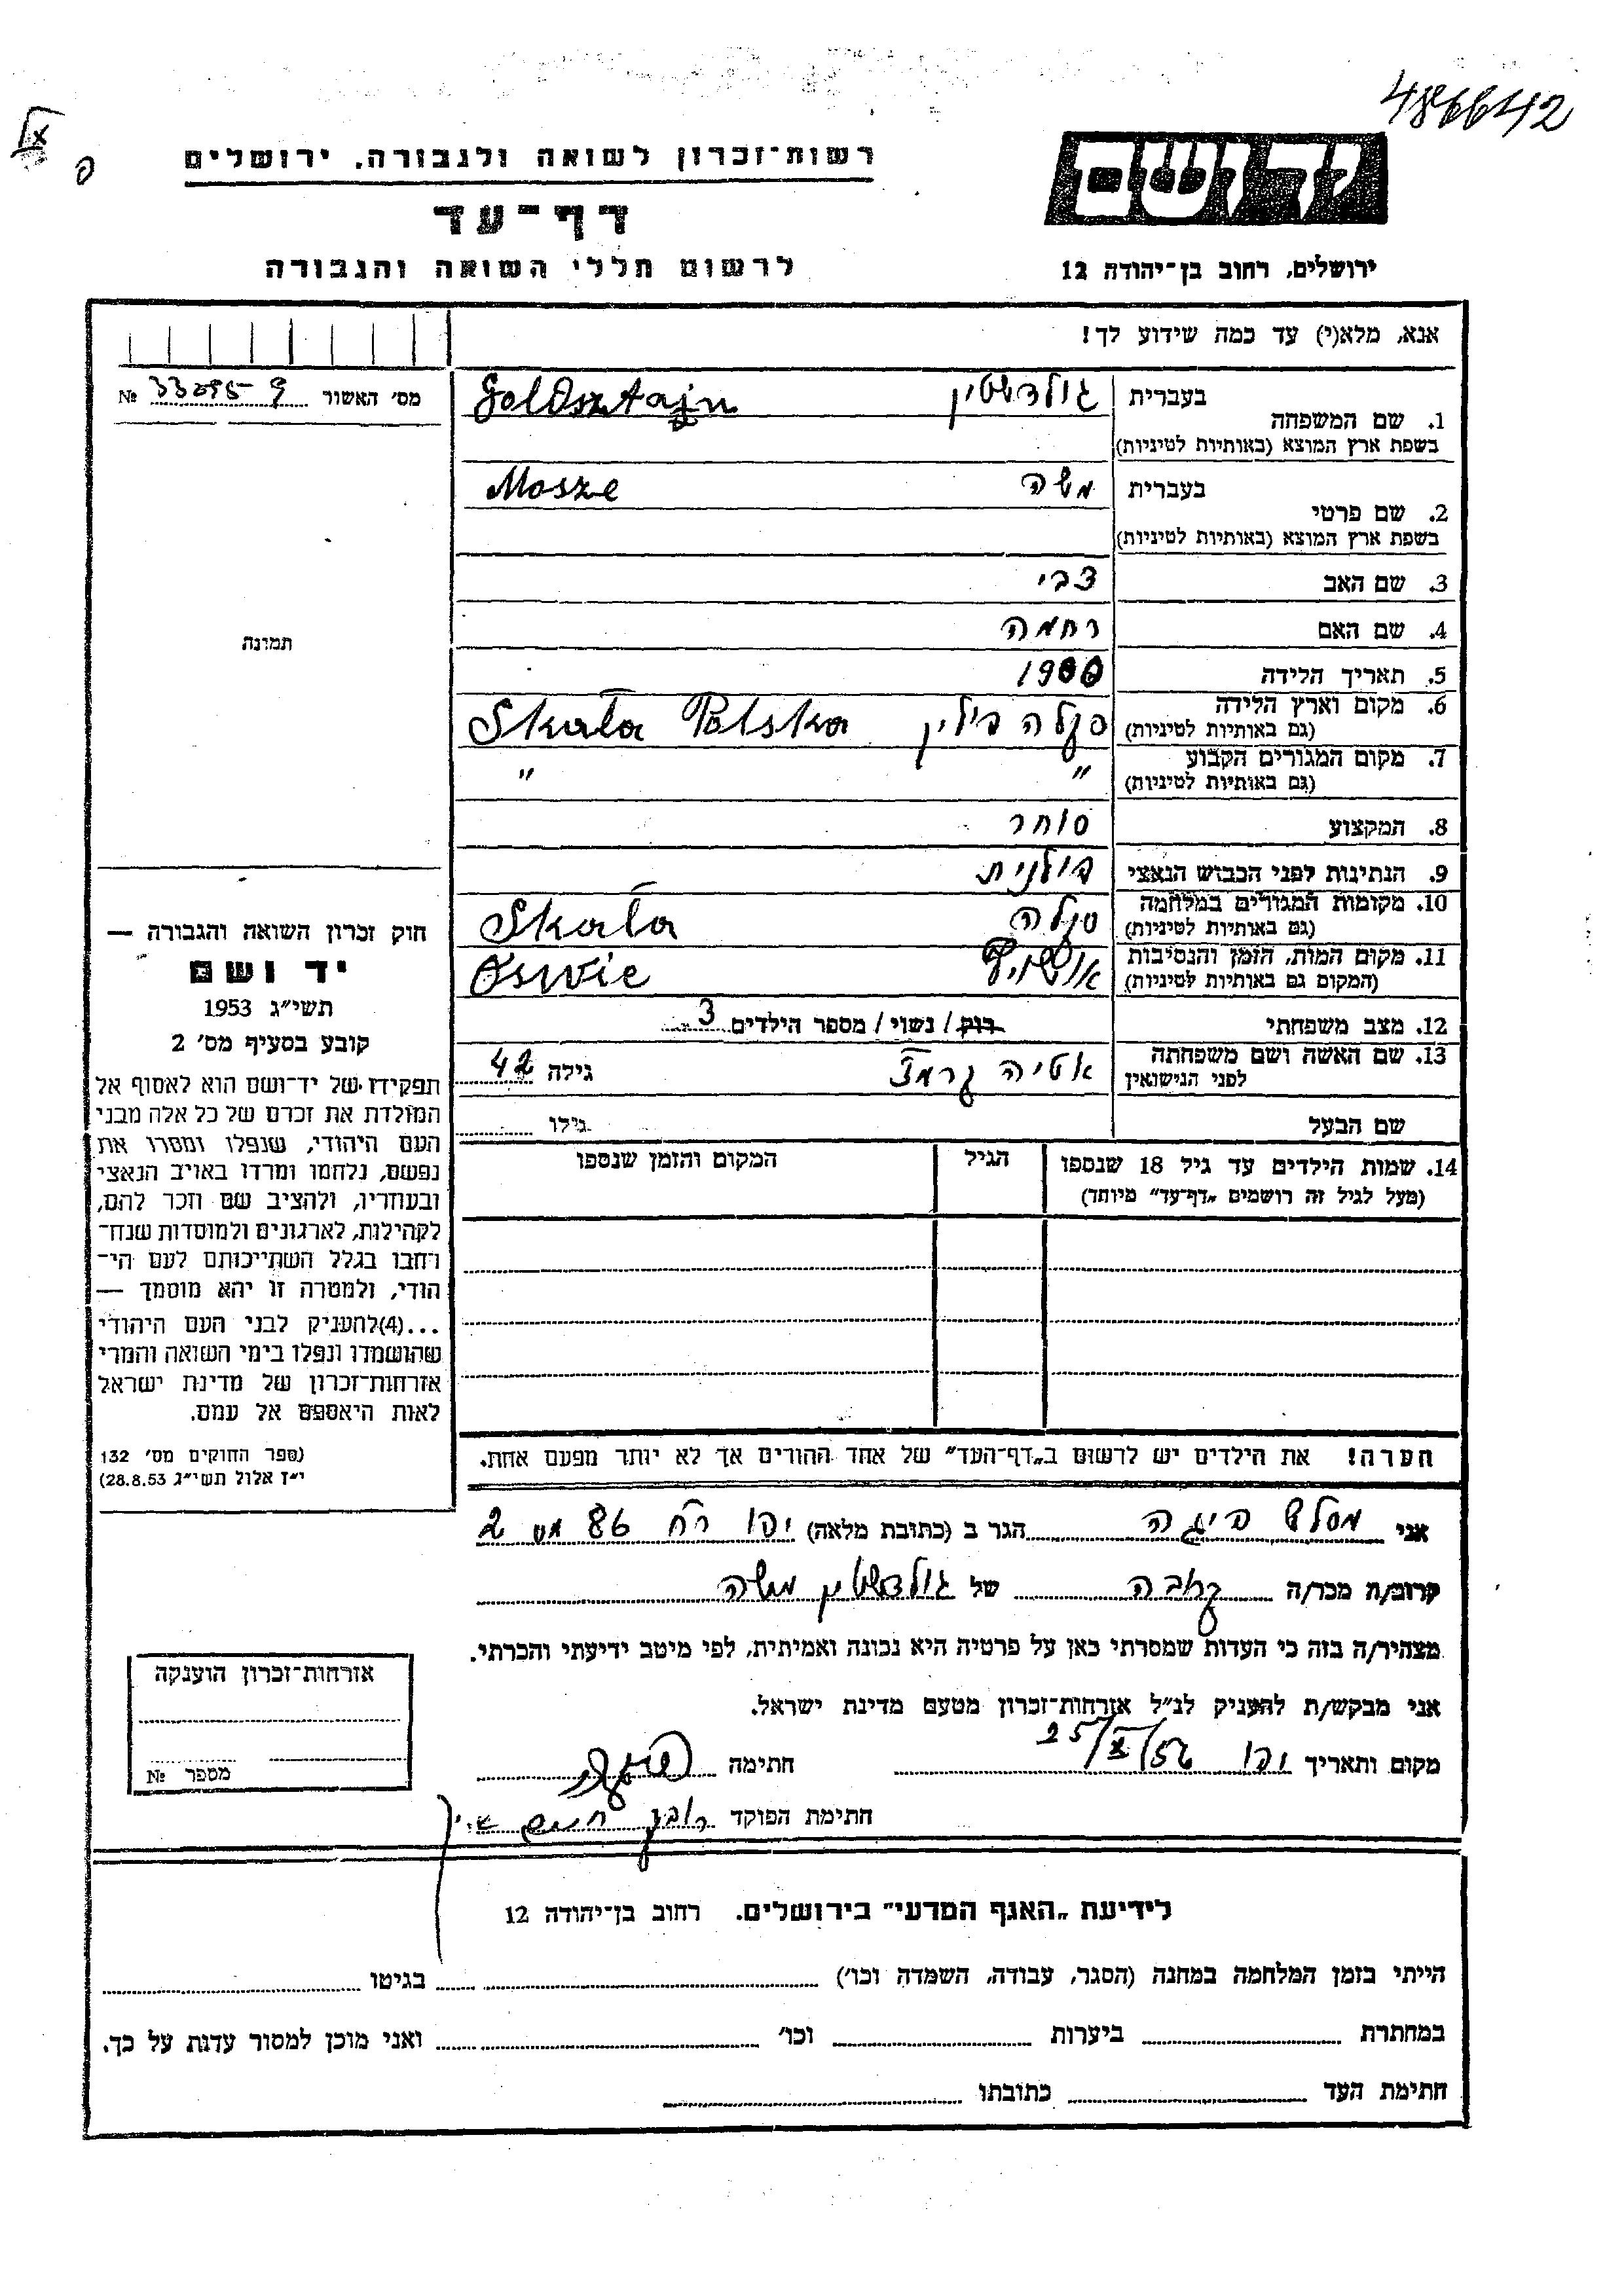 486642
יד ושם
רשות־זכרון לשואה ולגבורה, ירושלים
דף־עד
ירושלים, רחוב בן־יהודה 12
לרשום חללי השואה והגבורה
אנא, מלא(י) עד כמה שידוע לך!
מס׳ האשור № 330959
1. שם המשפחה
בעברית גולדשטין Goldsztajn
בשפת ארץ המוצא (באותיות לטיניות)
2. שם פרטי
בעברית משה Mosze
בשפת ארץ המוצא (באותיות לטיניות)
3. שם האב צבי
4. שם האם רחמה
תמונה
5. תאריך הלידה 1900
6. מקום וארץ הלידה סקלה פילין Skała Polska
(גם באותיות לטיניות)
7. מקום המגורים הקבוע " "
(גם באותיות לטיניות)
8. המקצוע סוחר
9. הנתינות לפני הכבוש הנאצי פולנית
10. מקומות המגורים במלחמה סקלה Skała
(גם באותיות לטיניות)
11. מקום המות, הזמן והנסיבות Osvie
(המקום גם באותיות לטיניות)
12. מצב משפחתי רוק / נשוי / מספר הילדים 3
13. שם האשה ושם משפחתה
לפני הנישואין אטיה גילה 42
שם הבעל גילו
14. שמות הילדים עד גיל 18 שנספו הגיל המקום והזמן שנספו
(מעל לגיל זה רושמים „דף־עד” מיוחד)
הערה! את הילדים יש לרשום ב„דף־העד” של אחד ההורים אך לא יותר מפעם אחת.
חוק זכרון השואה והגבורה —
יד ושם
תשי״ג 1953
קובע בסעיף מס׳ 2
תפקידו של יד־ושם הוא לאסוף אל
המולדת את זכרם של כל אלה מבני
העם היהודי, שנפלו ומסרו את
נפשם, נלחמו ומרדו באויב הנאצי
ובעוזריו, ולהציב שם וזכר להם,
לקהילות, לארגונים ולמוסדות שנח־
רחבו בגלל השתייכותם לעם הי־
הודי, ולמטרה זו יהא מוסמך —
...(4)להעניק לבני העם היהודי
שהושמדו ונפלו בימי השואה והמרי
אזרחות־זכרון של מדינת ישראל
לאות היאספם אל עמם.
(ספר החוקים מס׳ 132
י״ז אלול תשי״ג 28.8.53)
אני הגר ב (כתובת מלאה) יפו רח 86 מס 2
קרוב/ה מכר/ה קרובה של גולדשטין משה
מצהיר/ה בזה כי העדות שמסרתי כאן על פרטיה היא נכונה ואמיתית, לפי מיטב ידיעתי והכרתי.
אני מבקש/ת להעניק לנ״ל אזרחות־זכרון מטעם מדינת ישראל.
מקום ותאריך יפו 25/X/56 חתימה
חתימת הפוקד
אזרחות־זכרון הוענקה
מספר №
לידיעת „האגף המדעי” בירושלים. רחוב בן־יהודה 12
הייתי בזמן המלחמה במחנה (הסגר, עבודה, השמדה וכו׳) בגיטו
במחתרת ביערות וכו׳ ואני מוכן למסור עדות על כך.
חתימת העד כתובתו